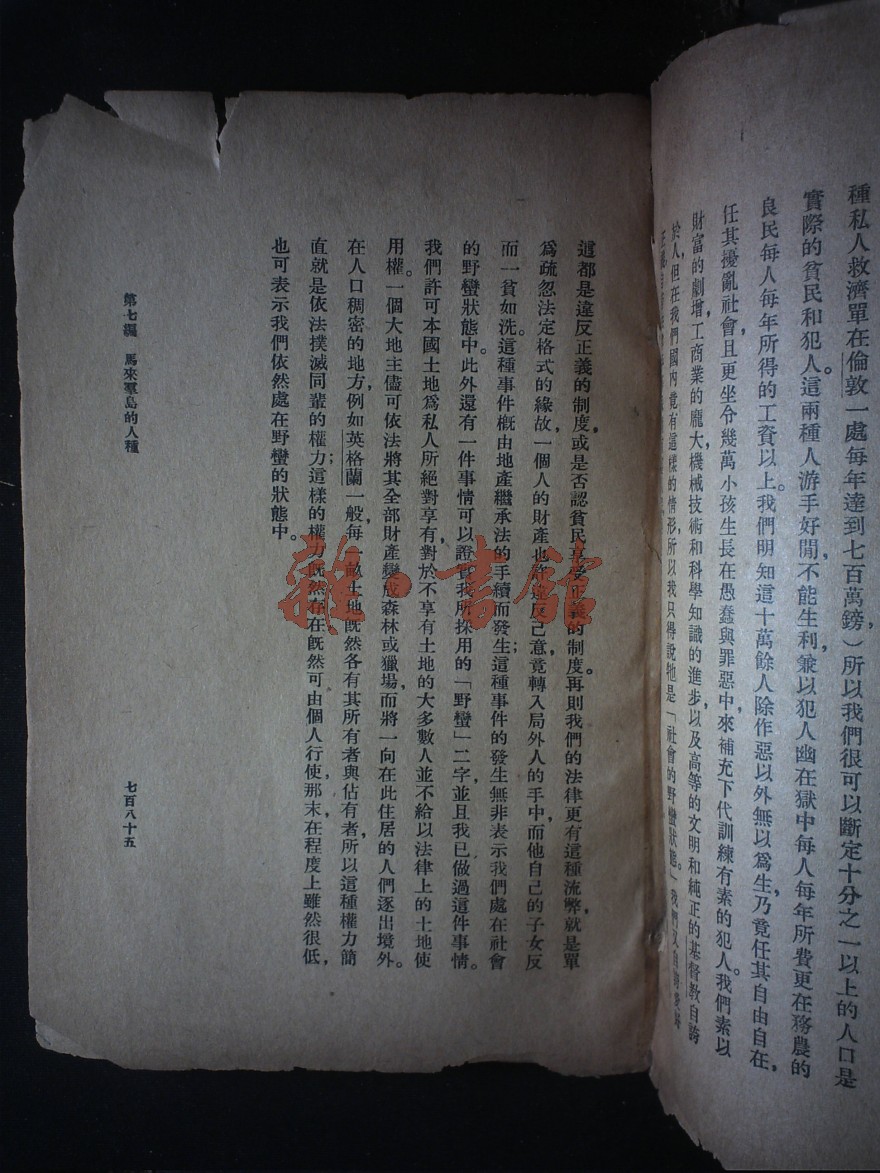 種私人救濟單在倫敦一處每年達到七百萬鎊，）所以我們很可以斷定十分之一以上的人口是
實際的貧民和犯人。這兩種人游手好閒，不能生利，兼以犯人幽在獄中每人每年所費更在務農的
良民每人每年所得的工資以上。我們明知這十萬餘人除作惡以外無以爲生，乃竟任其自由自在，
任其擾亂社會，且更坐令幾萬小孩生長在愚蠢與罪惡中，來補充下代訓練有素的犯人。我們素以
財富的劇增，工商業的龐大，機械技術和科學知識的進步，以及高等的文明和純正的基督教自誇
於人，但在我們國內竟有這樣的情形，所以我只得說牠是「社會的野蠻狀態。」我們
這都是違反正義的制度，或是否認貧民享受正義的制度。再則我們的法律更有這種流弊，就是單
爲疏忽法定格式的緣故，一個人的財產也許違反己意，竟轉入局外人的手中，而他自己的子女反
而一貧如洗。這種事件概由地產繼承法的手續而發生；這種事件的發生無非表示我們處在社會
的野蠻狀態中。此外還有一件事情可以證實我所採用的「野蠻」二字，並且我已做過這件事情。
我們許可本國土地爲私人所絕對享有，對於不享有土地的大多數人並不給以法律上的土地使
用權。一個大地主儘可依法將其全部財產變成森林或獵場，而將一向在此住居的人們逐出境外。
在人口稠密的地方，例如英格蘭一般，每一畝土地既然各有其所有者與佔有者，所以這種權力簡
直就是依法撲滅同輩的權力；這樣的權力既然存在，既然可由個人行使，那末在程度上雖然很低，
也可表示我們依然處在野蠻的狀態中。
第七編　馬來羣島的人種
七百八十五
雜·書館